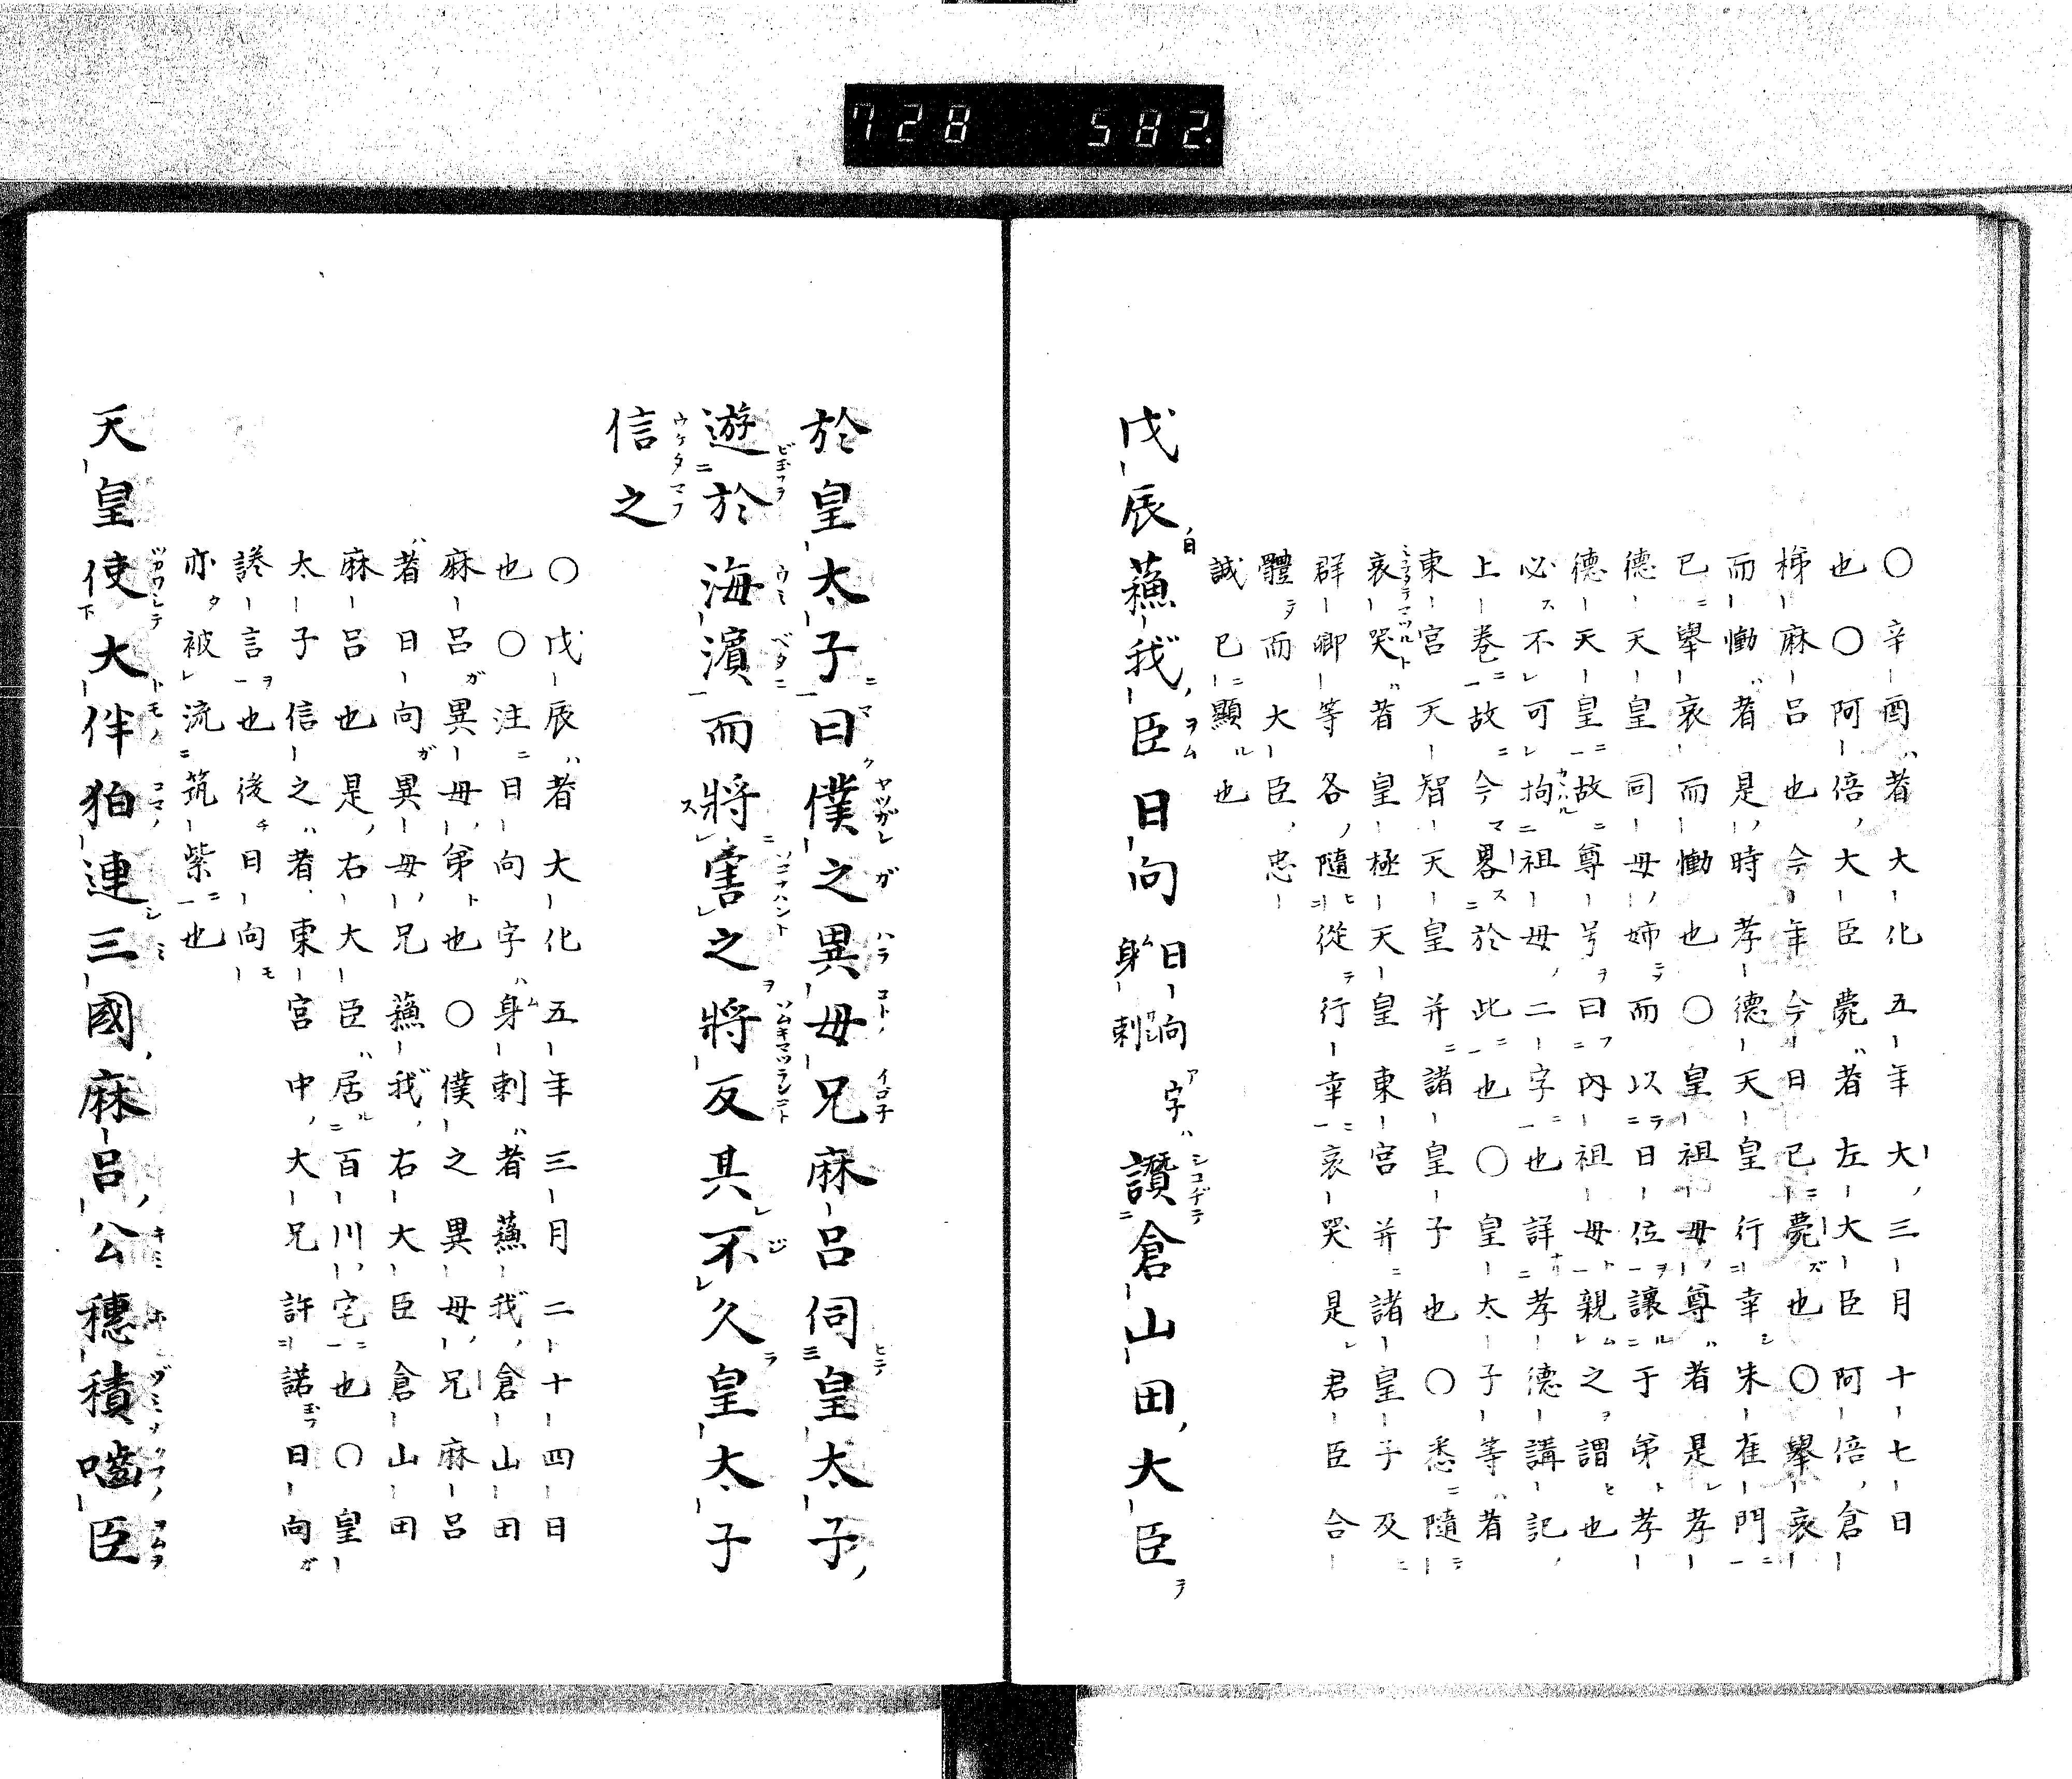 728 582.
〇辛酉者大化五年大三月十七日
也〇阿倍大臣薨者左大臣阿倍倉
梯麻呂也今年今日已薨也〇擧哀
而慟者是時孝德天皇行幸朱雀門
已擧哀而慟也〇皇祖母尊者是孝
德天皇同母姉而以日位讓于弟孝
德天皇故尊号曰內祖母親之謂也
必不可拘祖母二字也詳孝德講記
上卷故今畧於此也〇皇太子等者
東宮天智天皇并諸皇子也〇悉隨
哀哭者皇極天皇東宮并諸皇子及
群卿等各隨從行幸哀哭是君臣合
體而大臣忠
誠已顯也
戊辰蘓我臣日向日向字身刺讚倉山田大臣
於皇太子曰僕之異母兄麻呂伺皇太子
遊於海濱而將害之將反其不久皇太子
信之
〇戊辰者大化五年三月二十四日
也〇注日向字身刺者蘓我倉山田
麻呂異母弟也〇僕之異母兄麻呂
者日向異母兄蘓我右大臣倉山田
麻呂也是右大臣居百川宅也〇皇
太子信之者東宮中大兄許諾日向
讒言也後日向
亦被流筑紫也
天皇使大伴狛連三國麻呂公穗積嚙臣